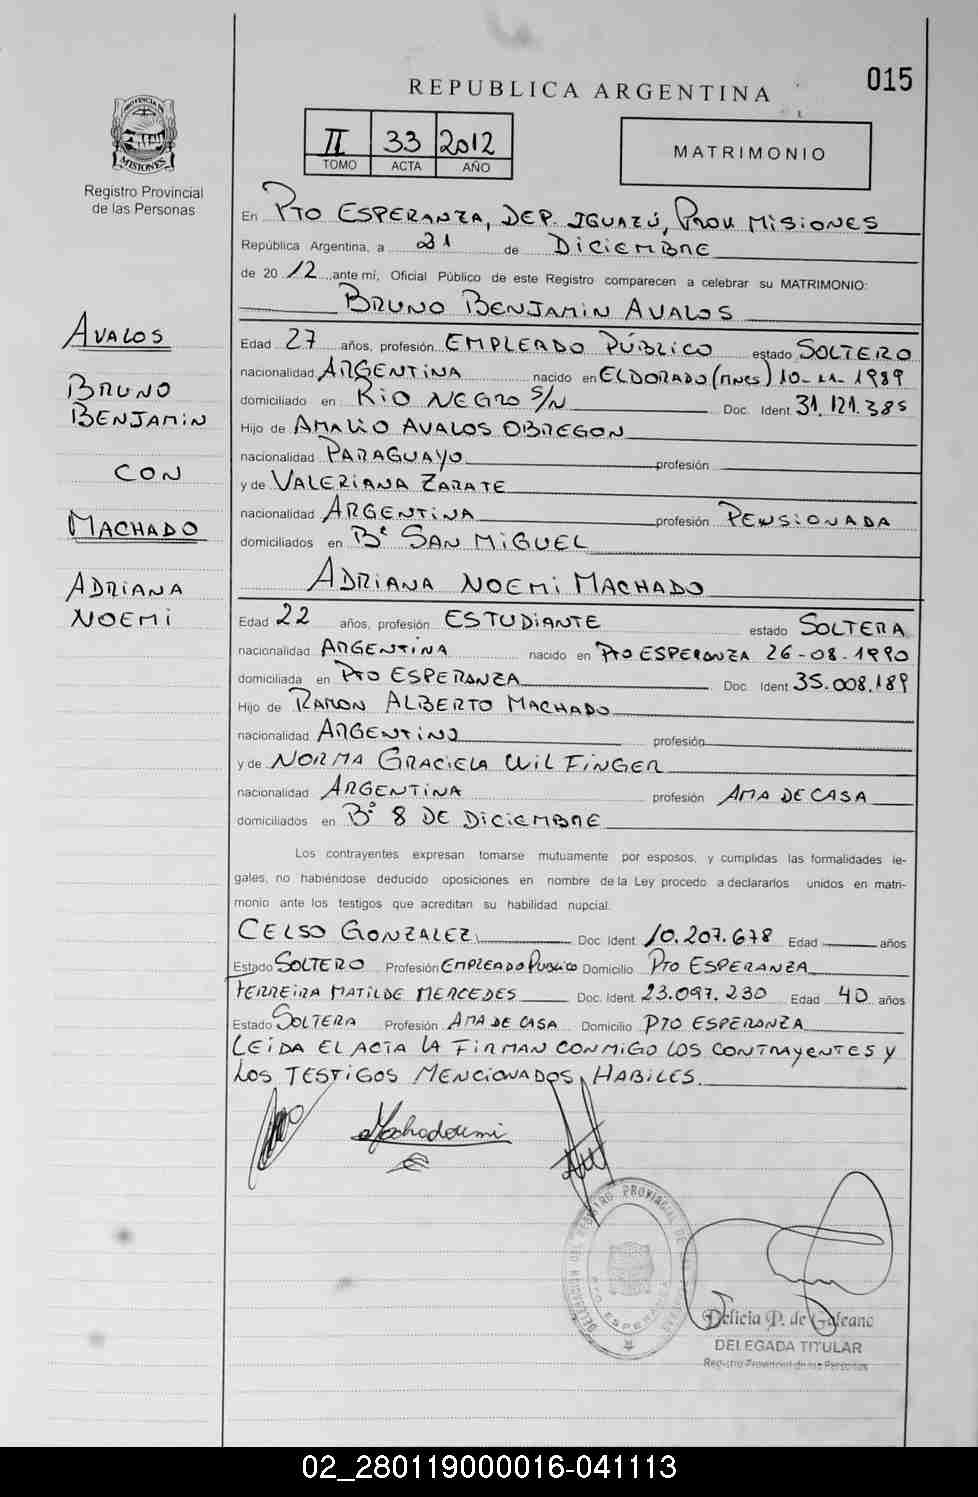 015
REPUBLICA ARGENTINA
PROVINCIA DE
MISIONES
Registro Provincial
de las Personas
II 33 2012
TOMO ACTA AÑO
MATRIMONIO
En PTO ESPERANZA, DEP. IGUAZÚ, PROV MISIONES
República Argentina, a 21 de DICIEMBRE
de 2012, ante mí, Oficial Público de este Registro comparecen a celebrar su MATRIMONIO:
BRUNO BENJAMIN AVALOS
AVALOS
BRUNO
BENJAMIN
CON
MACHADO
ADRIANA
NOEMI
Edad 27 años, profesión EMPLEADO PÚBLICO estado SOLTERO
nacionalidad ARGENTINA nacido en ELDORADO (MNES) 10-11-1989
domiciliado en RIO NEGRO S/N Doc. Ident. 31.121.385
Hijo de AMALIO AVALOS OBREGON
nacionalidad PARAGUAYO profesión
y de VALERIANA ZARATE
nacionalidad ARGENTINA profesión PENSIONADA
domiciliados en Bº SAN MIGUEL
ADRIANA NOEMI MACHADO
Edad 22 años, profesión ESTUDIANTE estado SOLTERA
nacionalidad ARGENTINA nacido en PTO ESPERANZA 26-08-1990
domiciliada en PTO ESPERANZA Doc. Ident 35.008.189
Hijo de RAMON ALBERTO MACHADO
nacionalidad ARGENTINO profesión
y de NORMA GRACIELA WILFINGER
nacionalidad ARGENTINA profesión AMA DE CASA
domiciliados en Bº 8 DE DICIEMBRE
Los contrayentes expresan tomarse mutuamente por esposos, y cumplidas las formalidades le-
gales, no habiéndose deducido oposiciones en nombre de la Ley procedo a declararlos unidos en matri-
monio ante los testigos que acreditan su habilidad nupcial.
CELSO GONZALEZ Doc. Ident. 10.207.678 Edad años
Estado SOLTERO Profesión EMPLEADO PUBLICO Domicilio PTO ESPERANZA
FERREIRA MATILDE MERCEDES Doc. Ident. 23.097.230 Edad 40 años
Estado SOLTERA Profesión AMA DE CASA Domicilio PTO ESPERANZA
LEIDA EL ACTA LA FIRMAN CONMIGO LOS CONTRAYENTES Y
LOS TESTIGOS MENCIONADOS, HABILES.
DELEGACION DEL REGISTRO PROVINCIAL DE LAS PERSONAS
PTO. ESPERANZA
Delicia P. de Galeano
DELEGADA TITULAR
Registro Provincial de las Personas
02_280119000016-041113